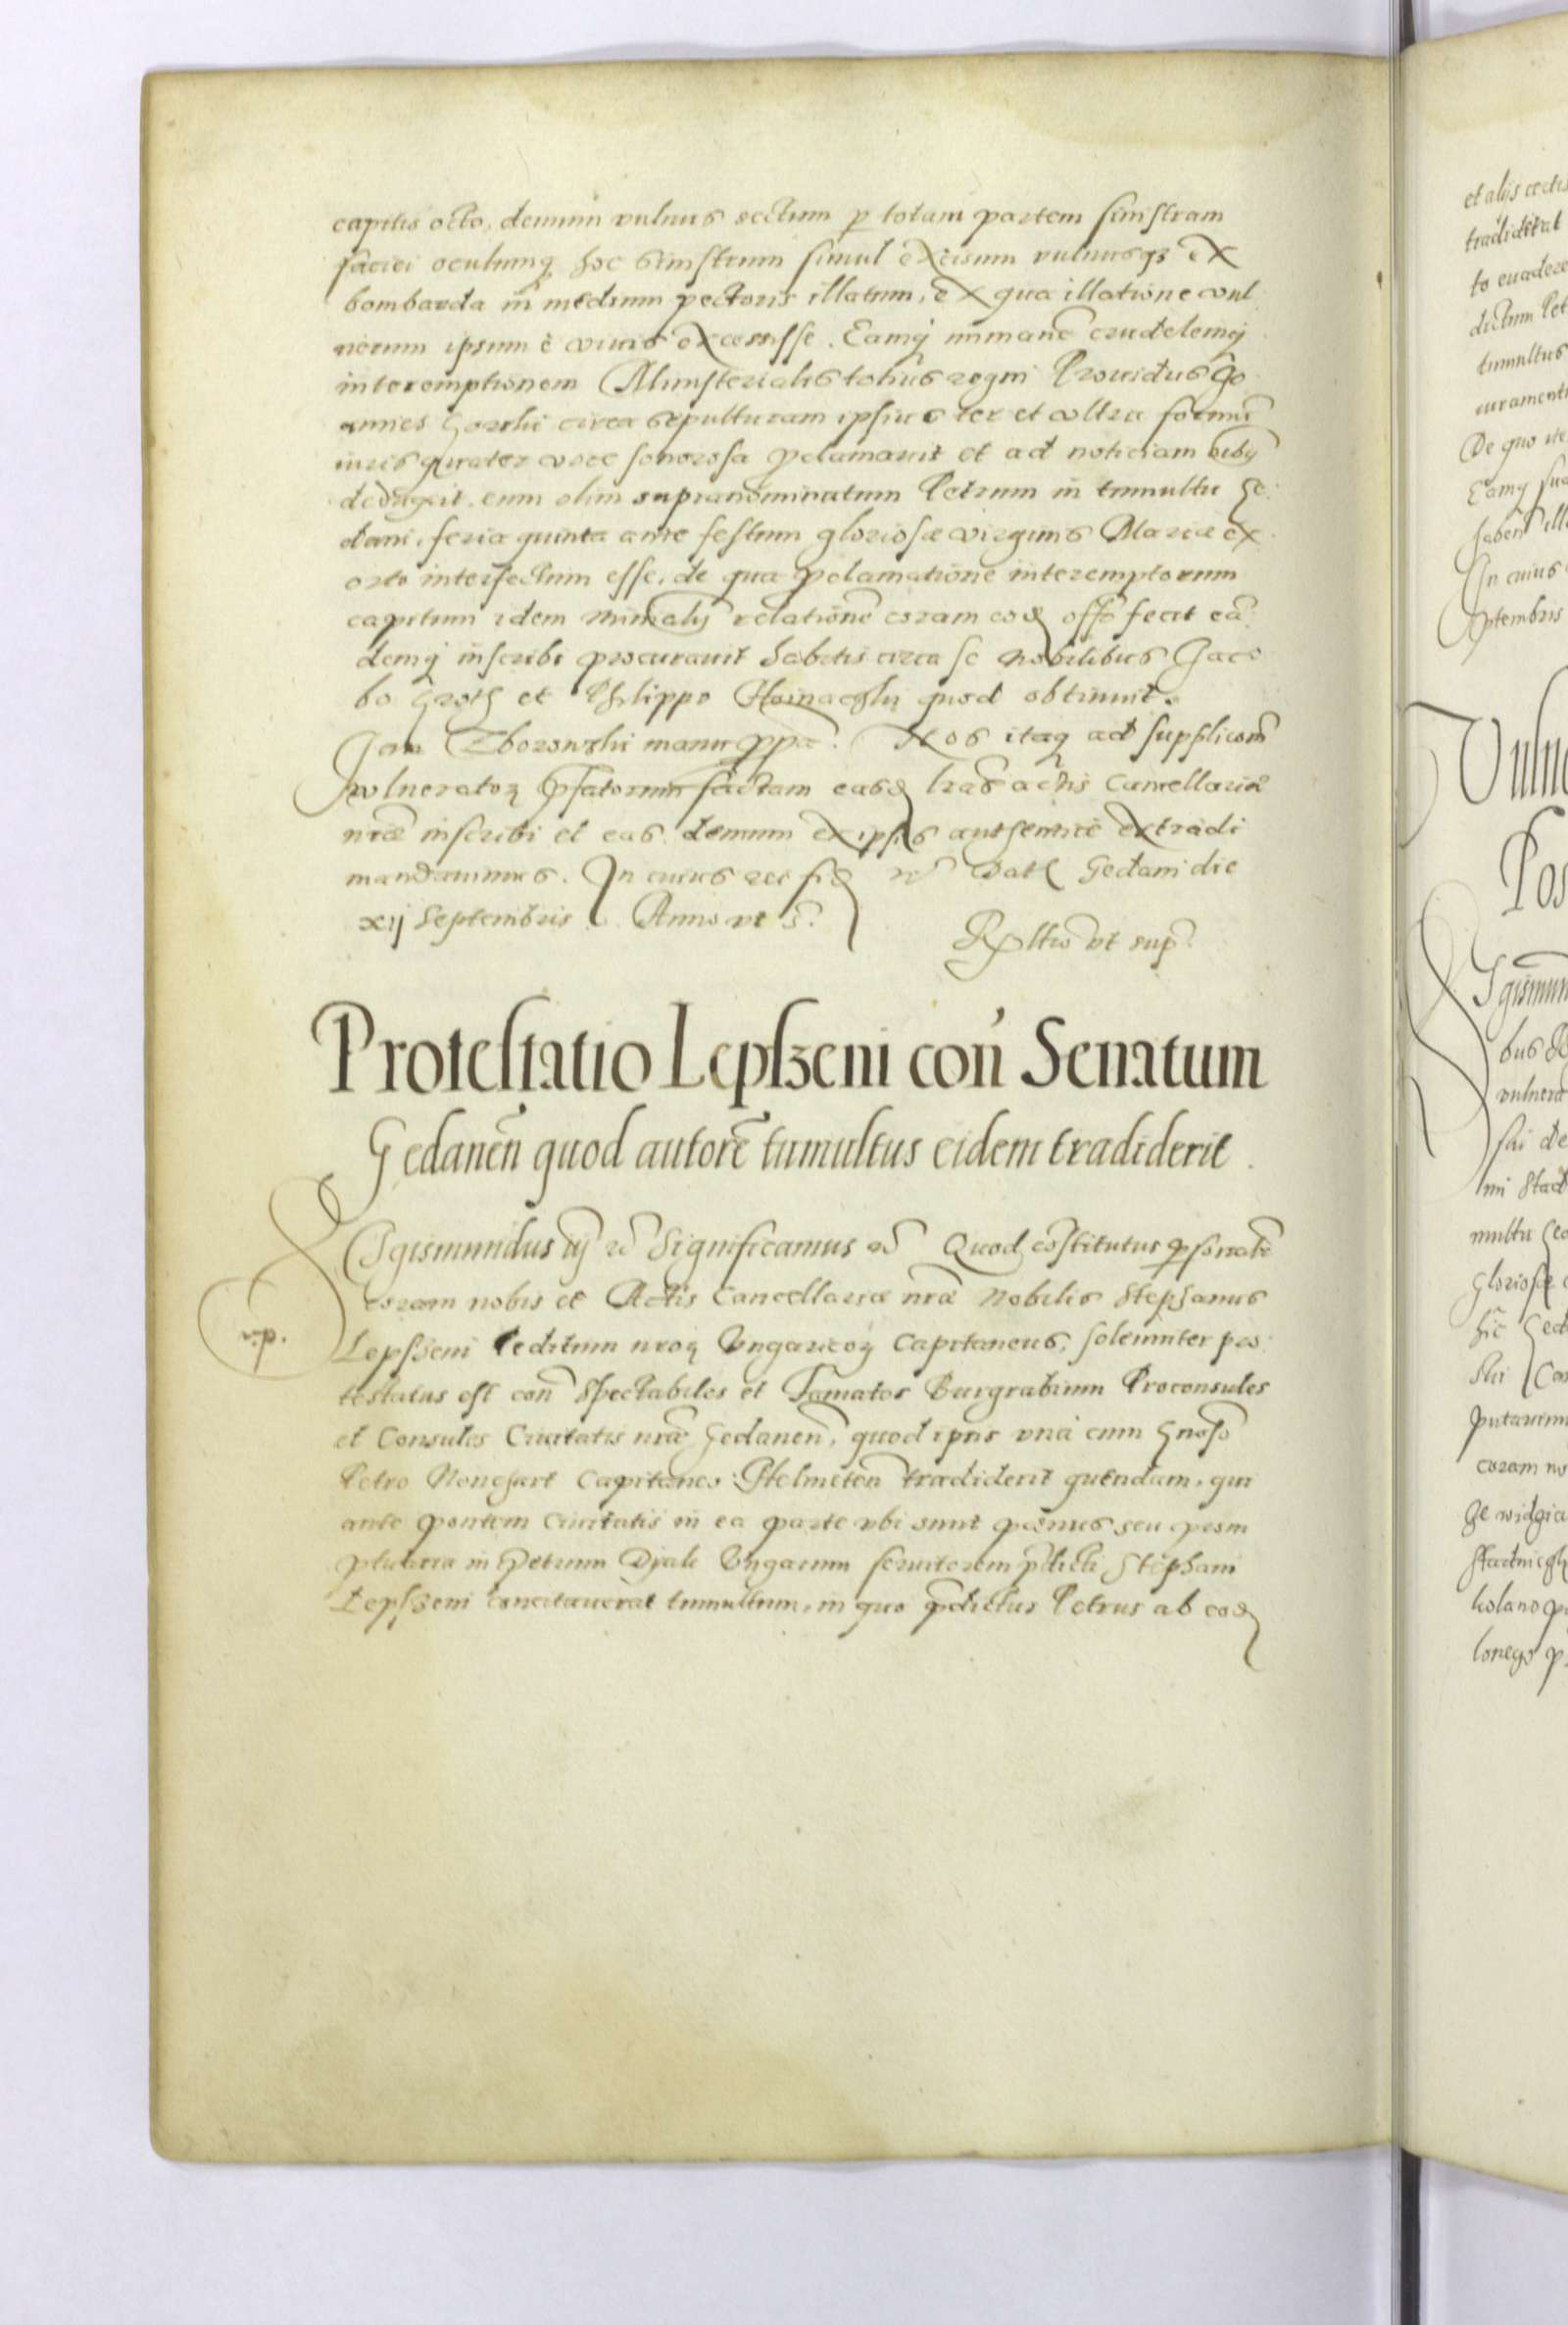 capitis octo, demum vulnus sectum p totam partem sinistram
faciei oculumq hoc sinistrum simul excisum vulnusqz ex
bombarda in medium pectoris illatum, ex qua illatione vul
nerum ipsum è viuis excessisse. Eamq immanē crudelemq
interemptionem Ministerialis totius regni Prouidus Jo
annes Gorski circa sepulturam ipsius ter et vltra formā
iuris quater voce sonorosa pclamauit et ad noticiam oibq
deduxit, eum olim supranominatum Petrum in tumultu Ge
dani, feria quinta ante festum gloriosæ virginis Mariæ ex
orto interfectum esse, de qua pclamatione interemptorum
capitum idem minrālis relationē coram eod offo fecit eā
demq inscribi procurauit habitis circa se Nobilibus Jaco
bo Groth et Philippo quod obtinuit.
Jan Zborowski manu ppa. Nos itaq ad supplicōm
vulneratoꝝ pfatorum factam easd lras actis Cancellariæ
nræ inscribi et eas demum ex ipsis authentice extradi
mandauimus. In cuius rei fid Dat Gedani die
xij Septembris Anno vt s.
Rltio vt sup.
Protestatio Lepszeni con Senatum
Gedanēn quod autorē tumultus eidem tradiderit.
Sigismundus Significamus Quod cōstitutus psonalr
coram nobis et Actis Cancellariæ nræ Nobilis Stephanus
v.p.
Lepszeni peditum nroꝝ Vngaricoꝝ Capitaneus, solemniter pro
testatus est con Spectabiles et Famatos Burgrabium Proconsules
et Consules Ciuitatis nræ Gedanen, quod ipsis vnà cum Gnoso
Petro Capitaneo tradiderit quendam, qui
ante pontem Ciuitatis in ea parte vbi sunt
in Petrum Djak Vngarum seruitorem pdicti Stephani
Lepszeni concitauerat tumultum, in quo pdictus Petrus ab eod
et alijs
tradiderat
to euadere
dictum Pet
tumultus
iurament
De quo
Eamq
In cuius
ptembris
Vuln
Pos
Sigismun
bus
vulnera
mi
multu
gloriosæ
putauim
coram no